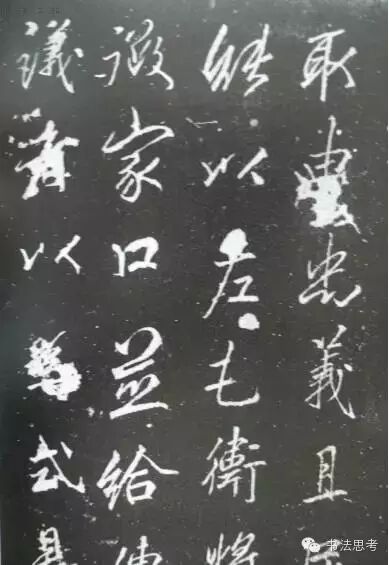 取忠義且
能以左屯衛將
徵家口並給傳
議以式
书法思考